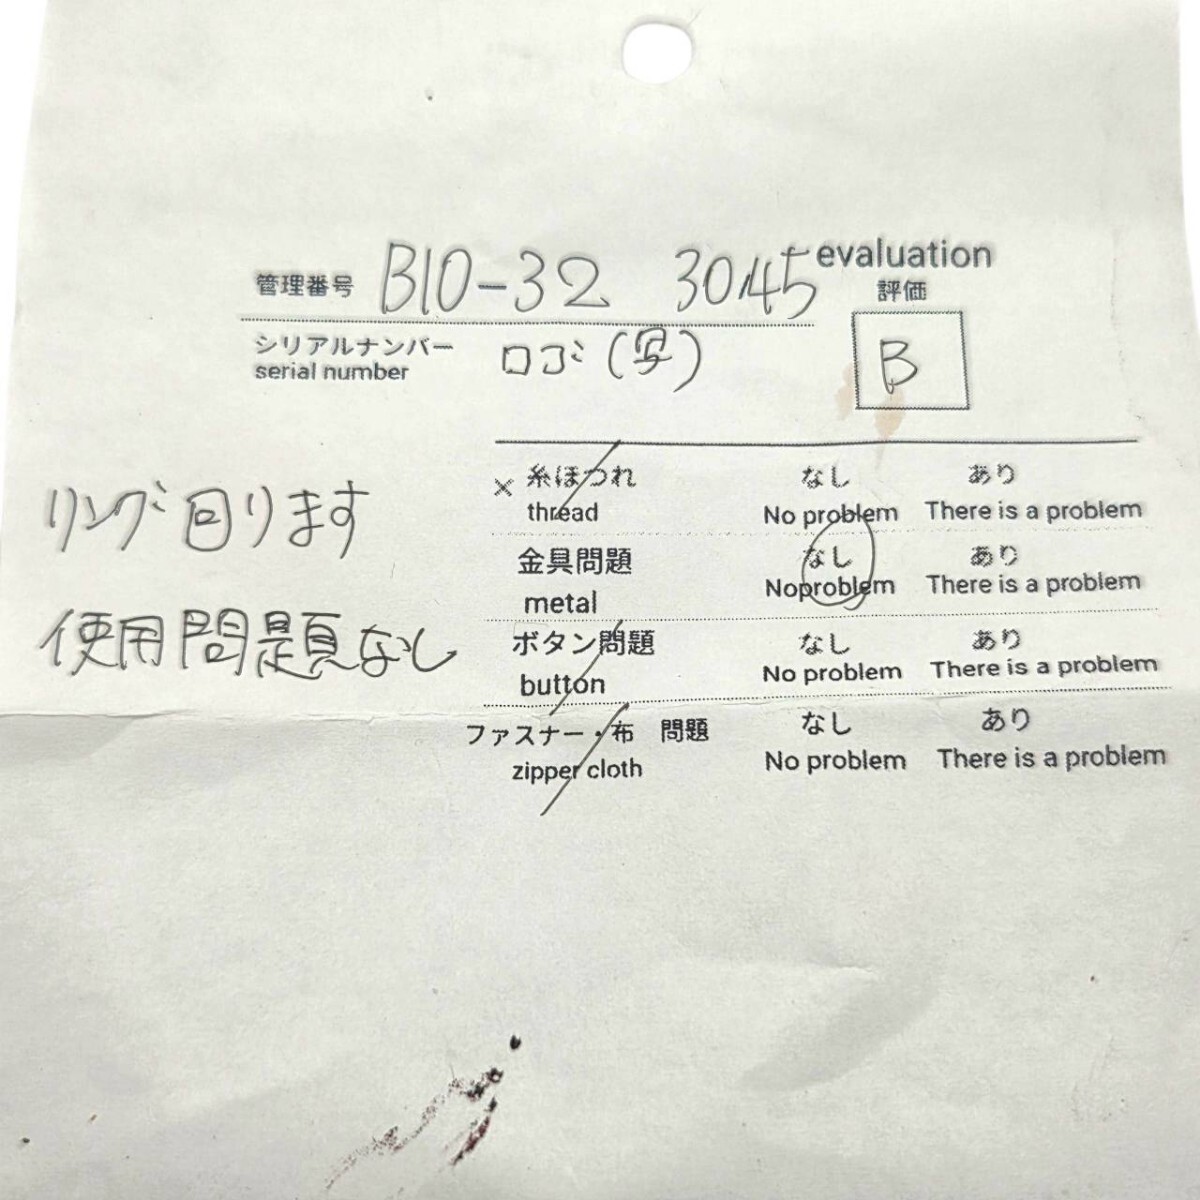 管理番号 B10-32 3045
evaluation
評価
B
シリアルナンバー ロゴ(写)
serial number
リング回ります
使用問題なし
× 糸ほつれ なし あり
thread No problem There is a problem
金具問題 なし あり
metal Noproblem There is a problem
ボタン問題 なし あり
button No problem There is a problem
ファスナー・布 問題 なし あり
zipper cloth No problem There is a problem